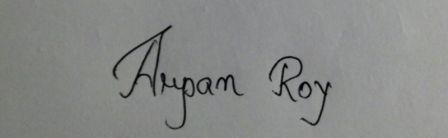 Arpan Roy